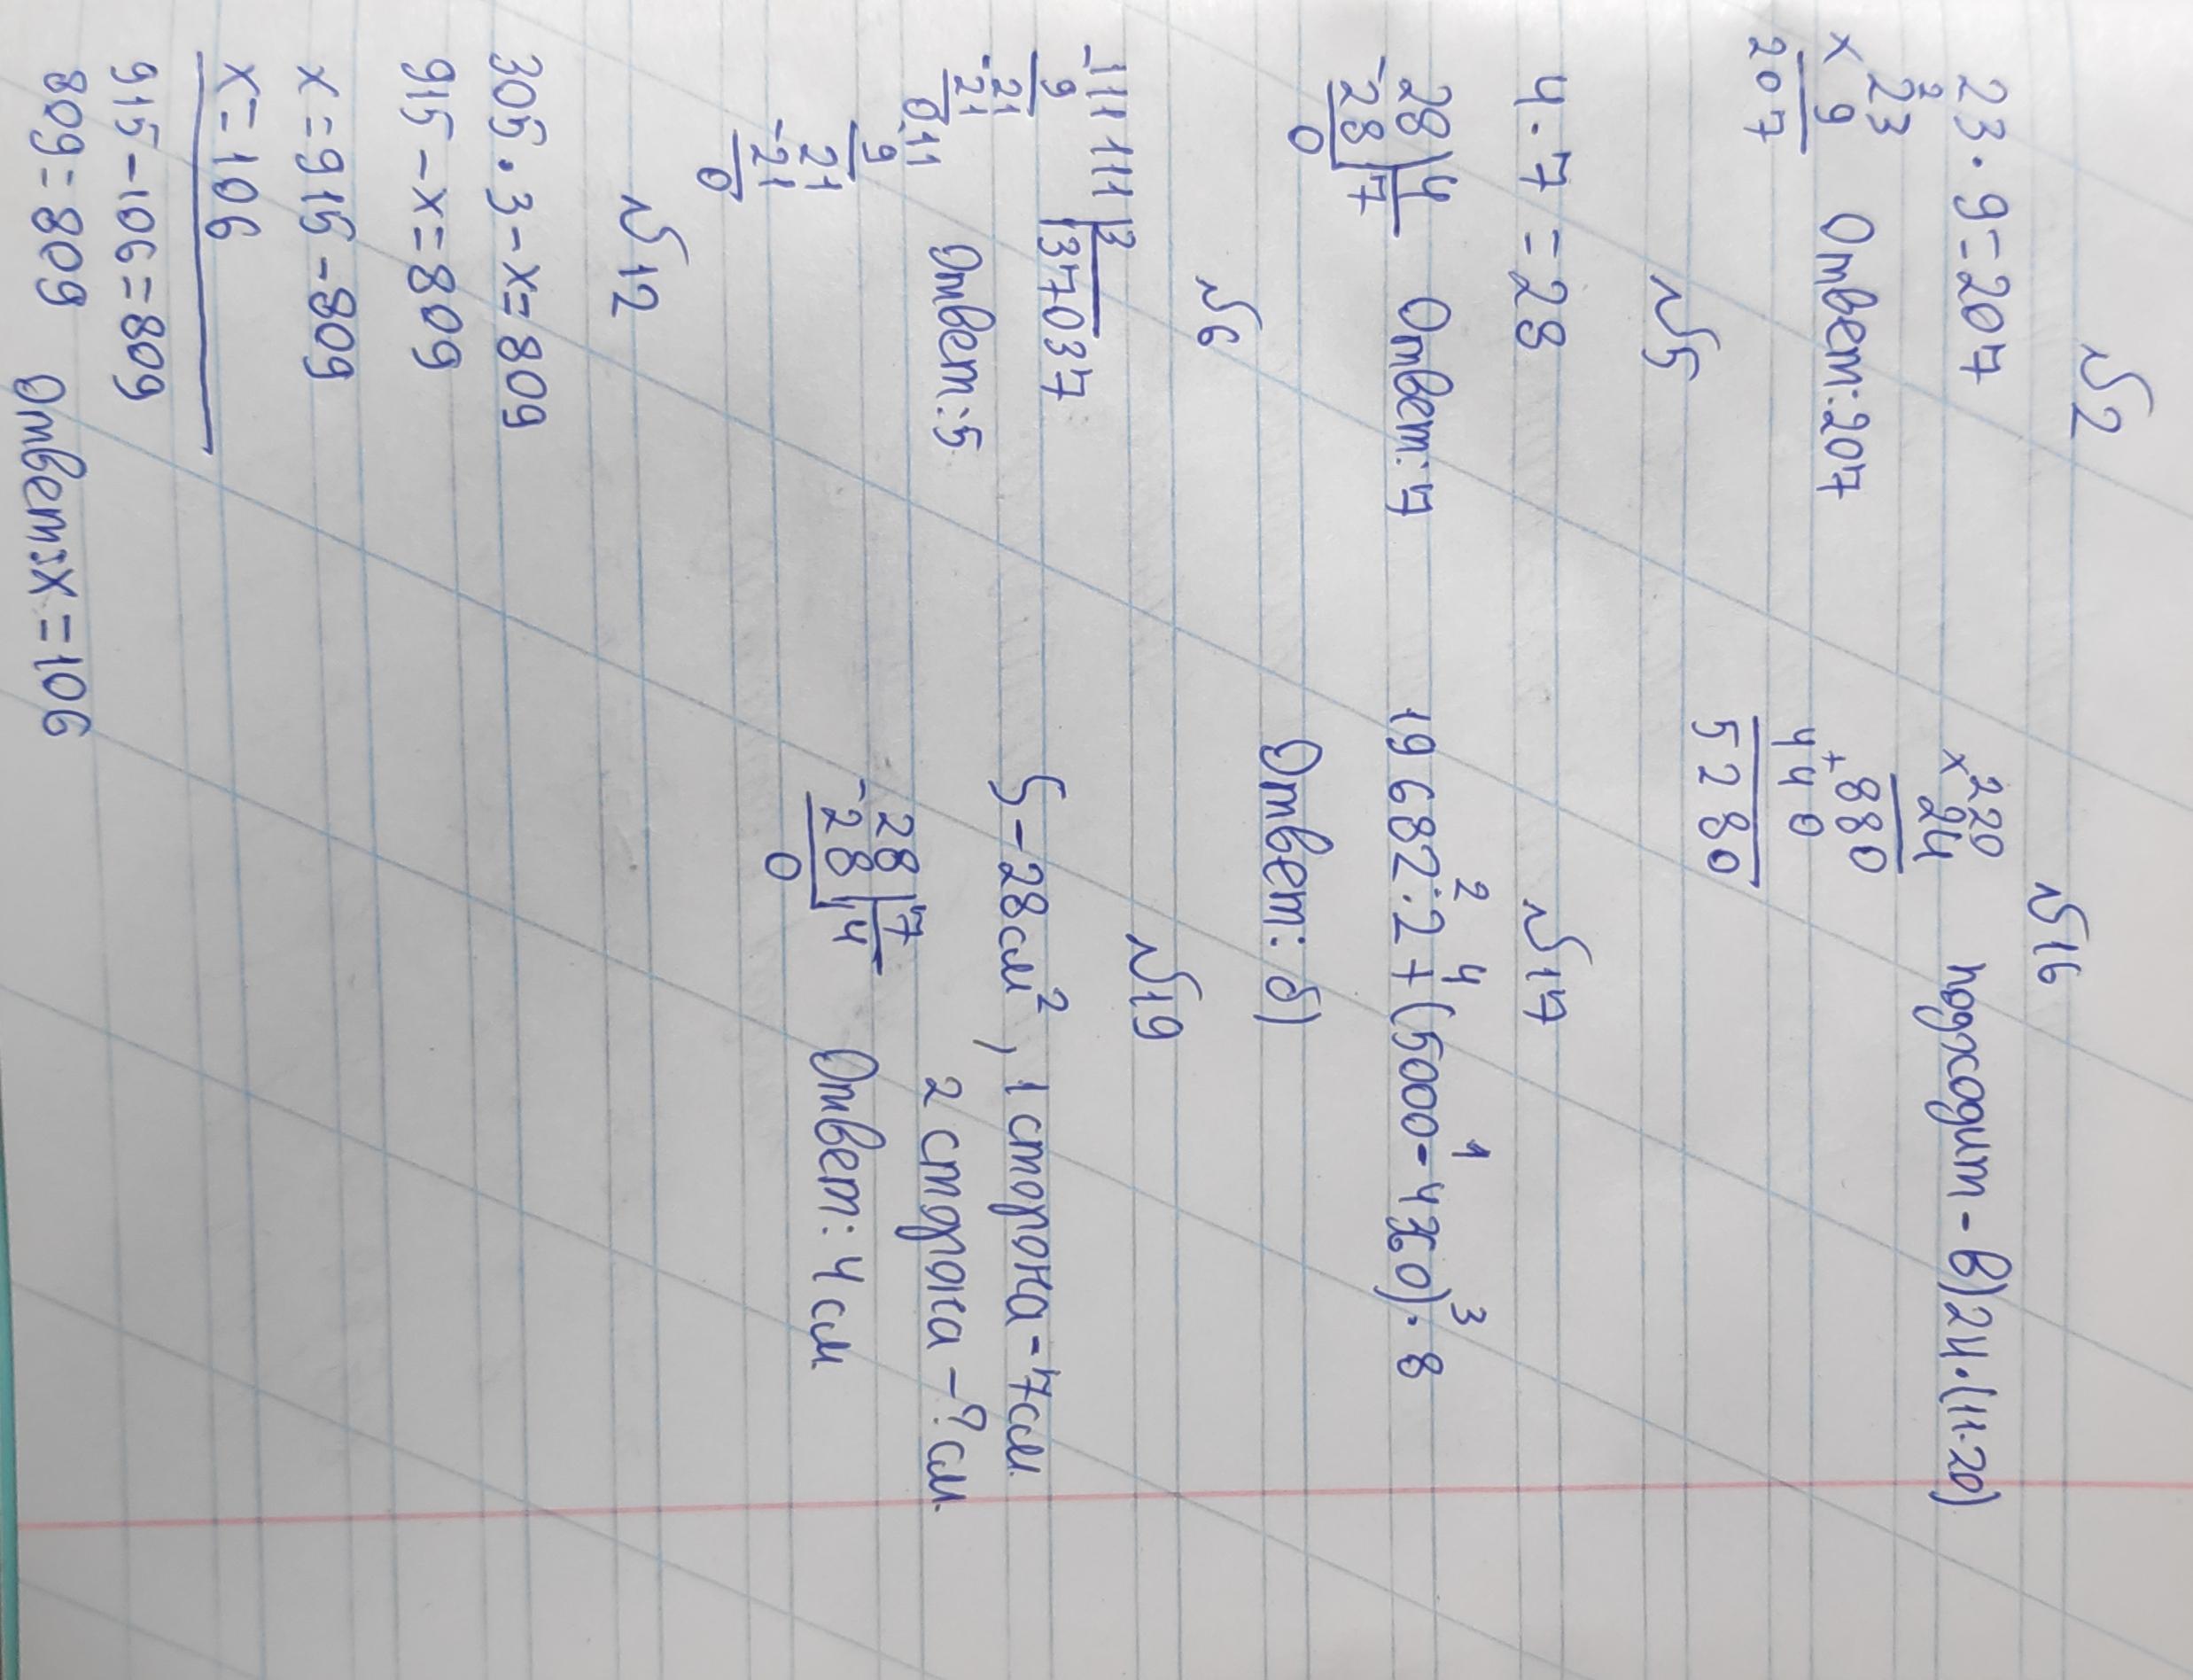 №2
23·9=207
2
23
× 9
207
Ответ:207
№5
4·7=28
28 4
-28 7
0
Ответ:7
№6
-111 111 3
9 37037
-21
21
0 11
9
21
-21
0
Ответ:5
№12
305·3-x=809
915-x=809
x=915-809
x=106
915-106=809
809=809
Ответ:x=106
№16
220
×24
+880
440
5280
подходит-в)24·(11·20)
№17
2 4 1 3
19682:2+(5000-4)·8
Ответ: б)
№19
S-28см², 1 сторона-7см.
2 сторона-?см.
28 7
-28 4
0
Ответ: 4см